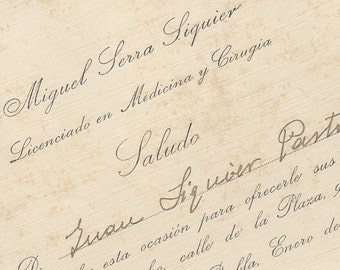 Miguel Serra Siquier
Licenciado en Medicina y Cirugía
Saludo
Juan Siquier
esta ocasión para ofrecerle sus
calle de la Plaza,
Enero de